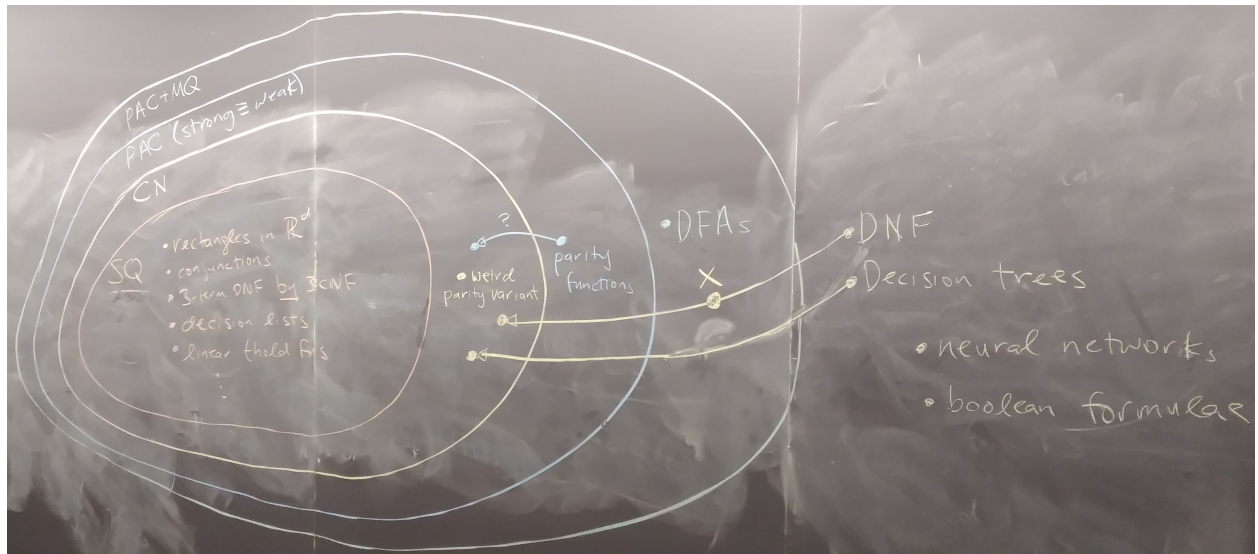 PAC+MQ
PAC (strong ≡ weak)
CN
SQ
• rectangles in ℝᵈ
• conjunctions
• 3-term DNF by 3CNF
• decision lists
• linear thold fns
?
• weird
parity variant
parity
functions
• DFAs
X
DNF
Decision trees
• neural networks
• boolean formulae